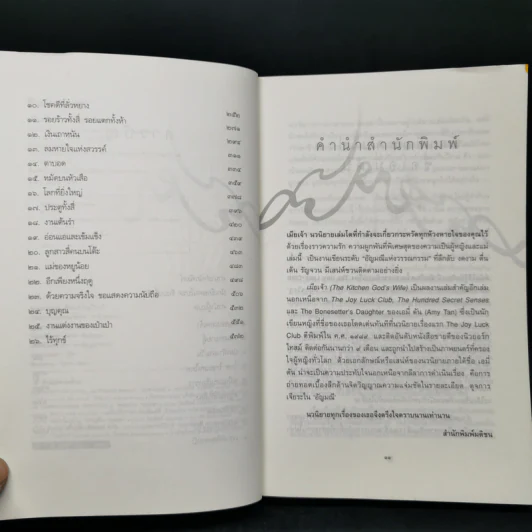 ๑๐. โชคดีที่ลั่วหยาง ๒๕๒
๑๑. รอยร้าวทั้งสี่ รอยแตกทั้งห้า ๒๗๑
๑๒. เงินเถาหนัน
๑๓. ลมหายใจแห่งสวรรค์ ๓๑๑
๑๔. ตาบอด
๑๕. หมัดบนหัวเสือ ๓๕๙
๑๖. โลกที่ยิ่งใหญ่
๑๗. ประตูทั้งสี่
๑๘. งานเต้นรำ
๑๙. อ่อนแอและเข้มแข็ง
๒๐. ลูกสาวสี่คนบนโต๊ะ
๒๑. แม่ของหยูน้อย
๒๒. อีกเพียงหนึ่งฤดู
๒๓. ด้วยความจริงใจ ขอแสดงความนับถือ ๕๐๑
๒๔. บุญคุณ
๒๕. งานแต่งงานของเป่าเป้า
๒๖. ไร้ทุกข์
คำนำสำนักพิมพ์
เมียเจ้า นวนิยายเล่มโตที่กำลังจะเกี่ยวกระหวัดทุกห้วงหายใจของคุณไว้
ด้วยเรื่องราวความรัก ความผูกพันที่พิเศษสุดของความเป็นผู้หญิงและแม่
เล่มนี้ เป็นงานเขียนระดับ “อัญมณีแห่งวรรณกรรม” ที่ลึกลับ งดงาม ตื่น
เต้น รัญจวน มีเสน่ห์ชวนติดตามอย่างยิ่ง
เมียเจ้า (The Kitchen God's Wife) เป็นผลงานเล่มสำคัญอีกเล่ม
นอกเหนือจาก The Joy Luck Club, The Hundred Secret Senses
และ The Bonesetter's Daughter ของเอมี่ ตัน (Amy Tan) ซึ่งเป็นนัก
เขียนหญิงที่ชื่อของเธอโดดเด่นทันทีที่นวนิยายเรื่องแรก The Joy Luck
Club ตีพิมพ์ใน ค.ศ. ๑๙๘๙ และติดอันดับหนังสือขายดีของนิวยอร์ก
ไทมส์ ติดต่อกันนานกว่า ๙ เดือน และถูกนำไปสร้างเป็นภาพยนตร์ที่ครอง
ใจผู้หญิงทั่วโลก ด้วยเอกลักษณ์หรือเสน่ห์ของนวนิยายภายใต้ชื่อ เอมี่
ตัน น่าจะเป็นความประทับใจนอกเหนือจากลีลาการดำเนินเรื่อง คือการ
ถ่ายทอดเบื้องลึกด้านจิตวิญญาณความแจ่มชัดในรายละเอียด ดุจการ
เจียระไน ‘อัญมณี’
นวนิยายทุกเรื่องของเธอจึงตรึงใจตราบนานเท่านาน
สำนักพิมพ์มติชน